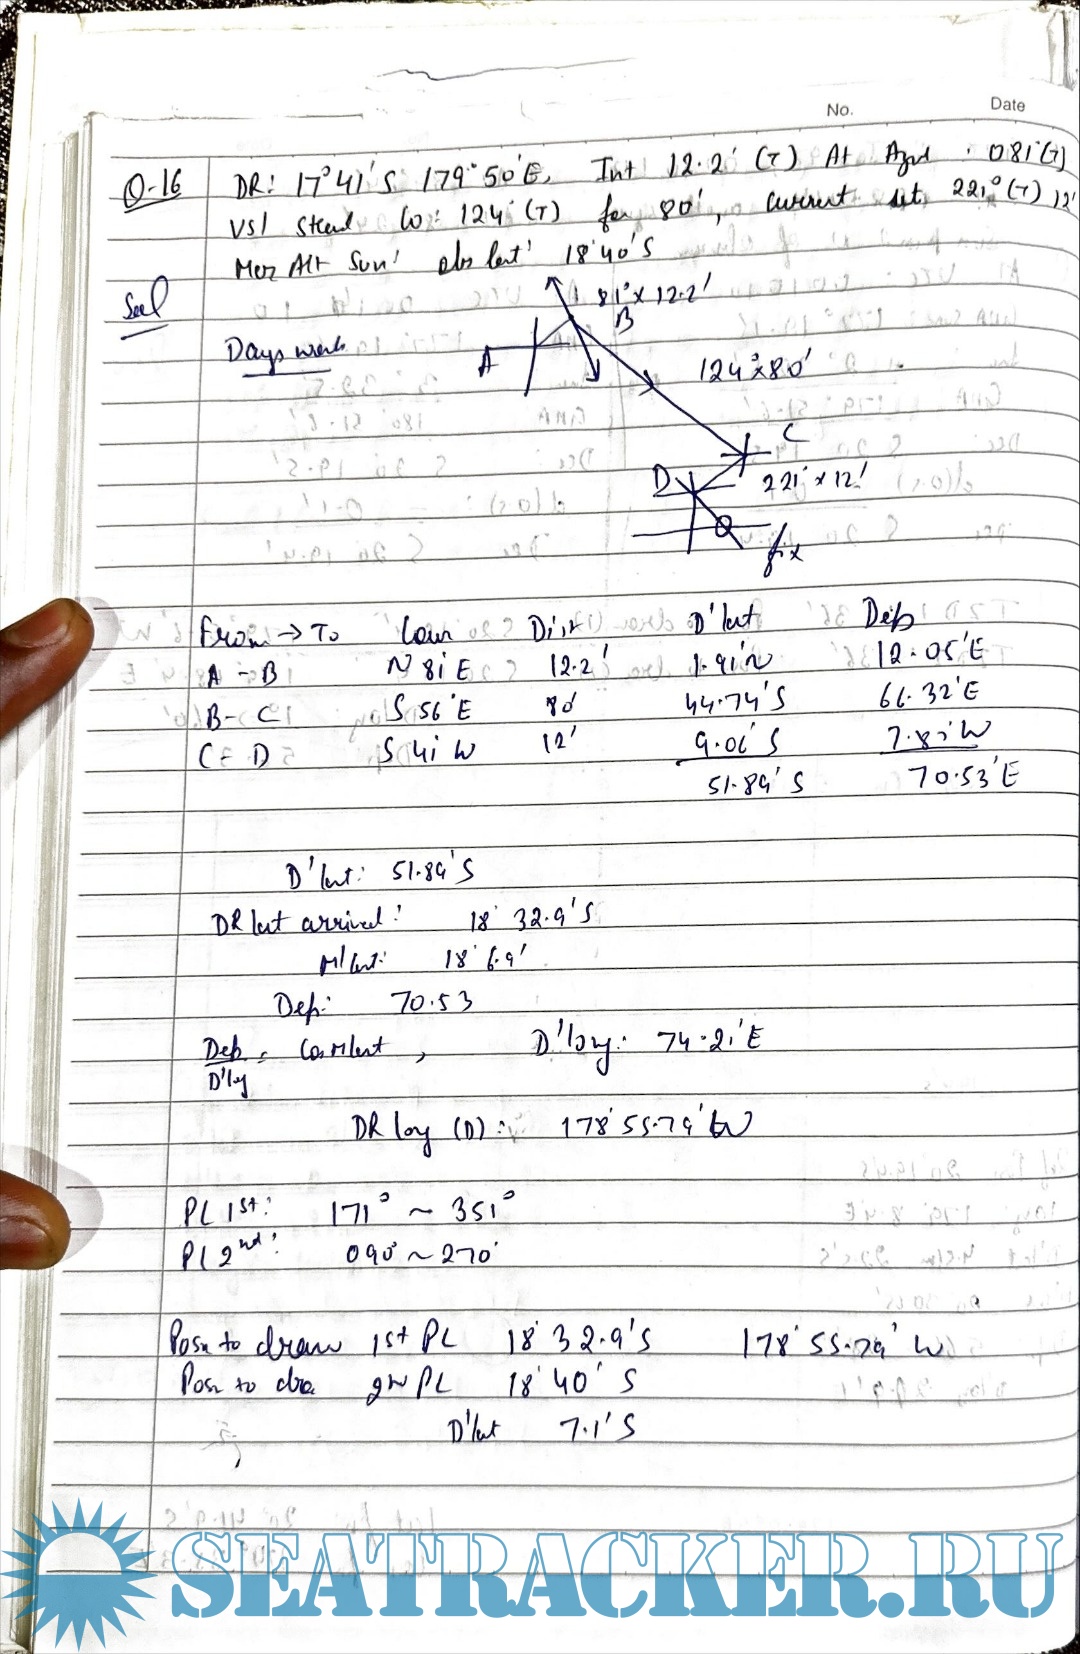 No. Date
Q-16 DR: 17°41'S 179°50'E, Int 12.2' (T) At Azm : 081°(T)
Vsl Steed Co: 124° (T) for 80', current set 221° (T) 12'
Mer Alt Sun' obs lat' 18°40'S
Sol
Days work
81° x 12.2'
B
A
124° x 80'
C
D 221° x 12'
fix
From → To Cour Dist D'lat Dep
A - B N 81 E 12.2' 1.91'N 12.05'E
B - C S 56°E 80' 44.74'S 66.32'E
C - D S 41 W 12' 9.06'S 7.87'W
51.89'S 70.53'E
D'lat: 51.89'S
DR lat arrived: 18° 32.9'S
M'lat: 18° 6.9'
Dep: 70.53
Dep = Cos Mlat , D'long: 74.21'E
D'lg
DR long (D): 178° 55.79' W
PL 1st: 171° ~ 351°
Pl 2nd: 090° ~ 270°
Posn to draw 1st PL 18° 32.9'S 178° 55.79' W
Posn to dra 2nd PL 18° 40' S
D'lat 7.1'S
SEATRACKER.RU